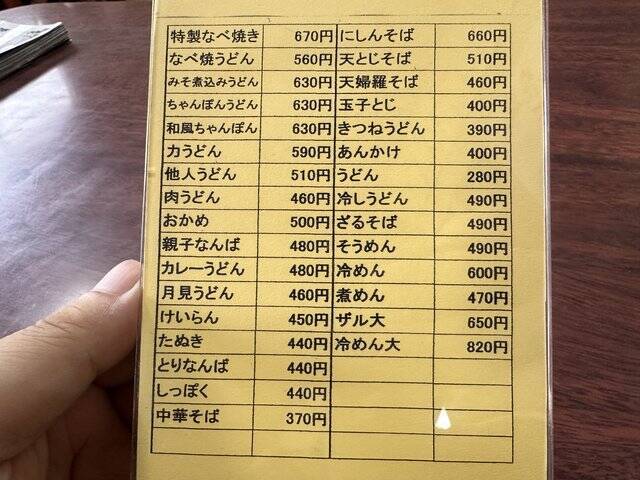 特製なべ焼き 670円 にしんそば 660円
なべ焼うどん 560円 天とじそば 510円
みそ煮込みうどん 630円 天婦羅そば 460円
ちゃんぽんうどん 630円 玉子とじ 400円
和風ちゃんぽん 630円 きつねうどん 390円
力うどん 590円 あんかけ 400円
他人うどん 510円 うどん 280円
肉うどん 460円 冷しうどん 490円
おかめ 500円 ざるそば 490円
親子なんば 480円 そうめん 490円
カレーうどん 480円 冷めん 600円
月見うどん 460円 煮めん 470円
けいらん 450円 ザル大 650円
たぬき 440円 冷めん大 820円
とりなんば 440円
しっぽく 440円
中華そば 370円